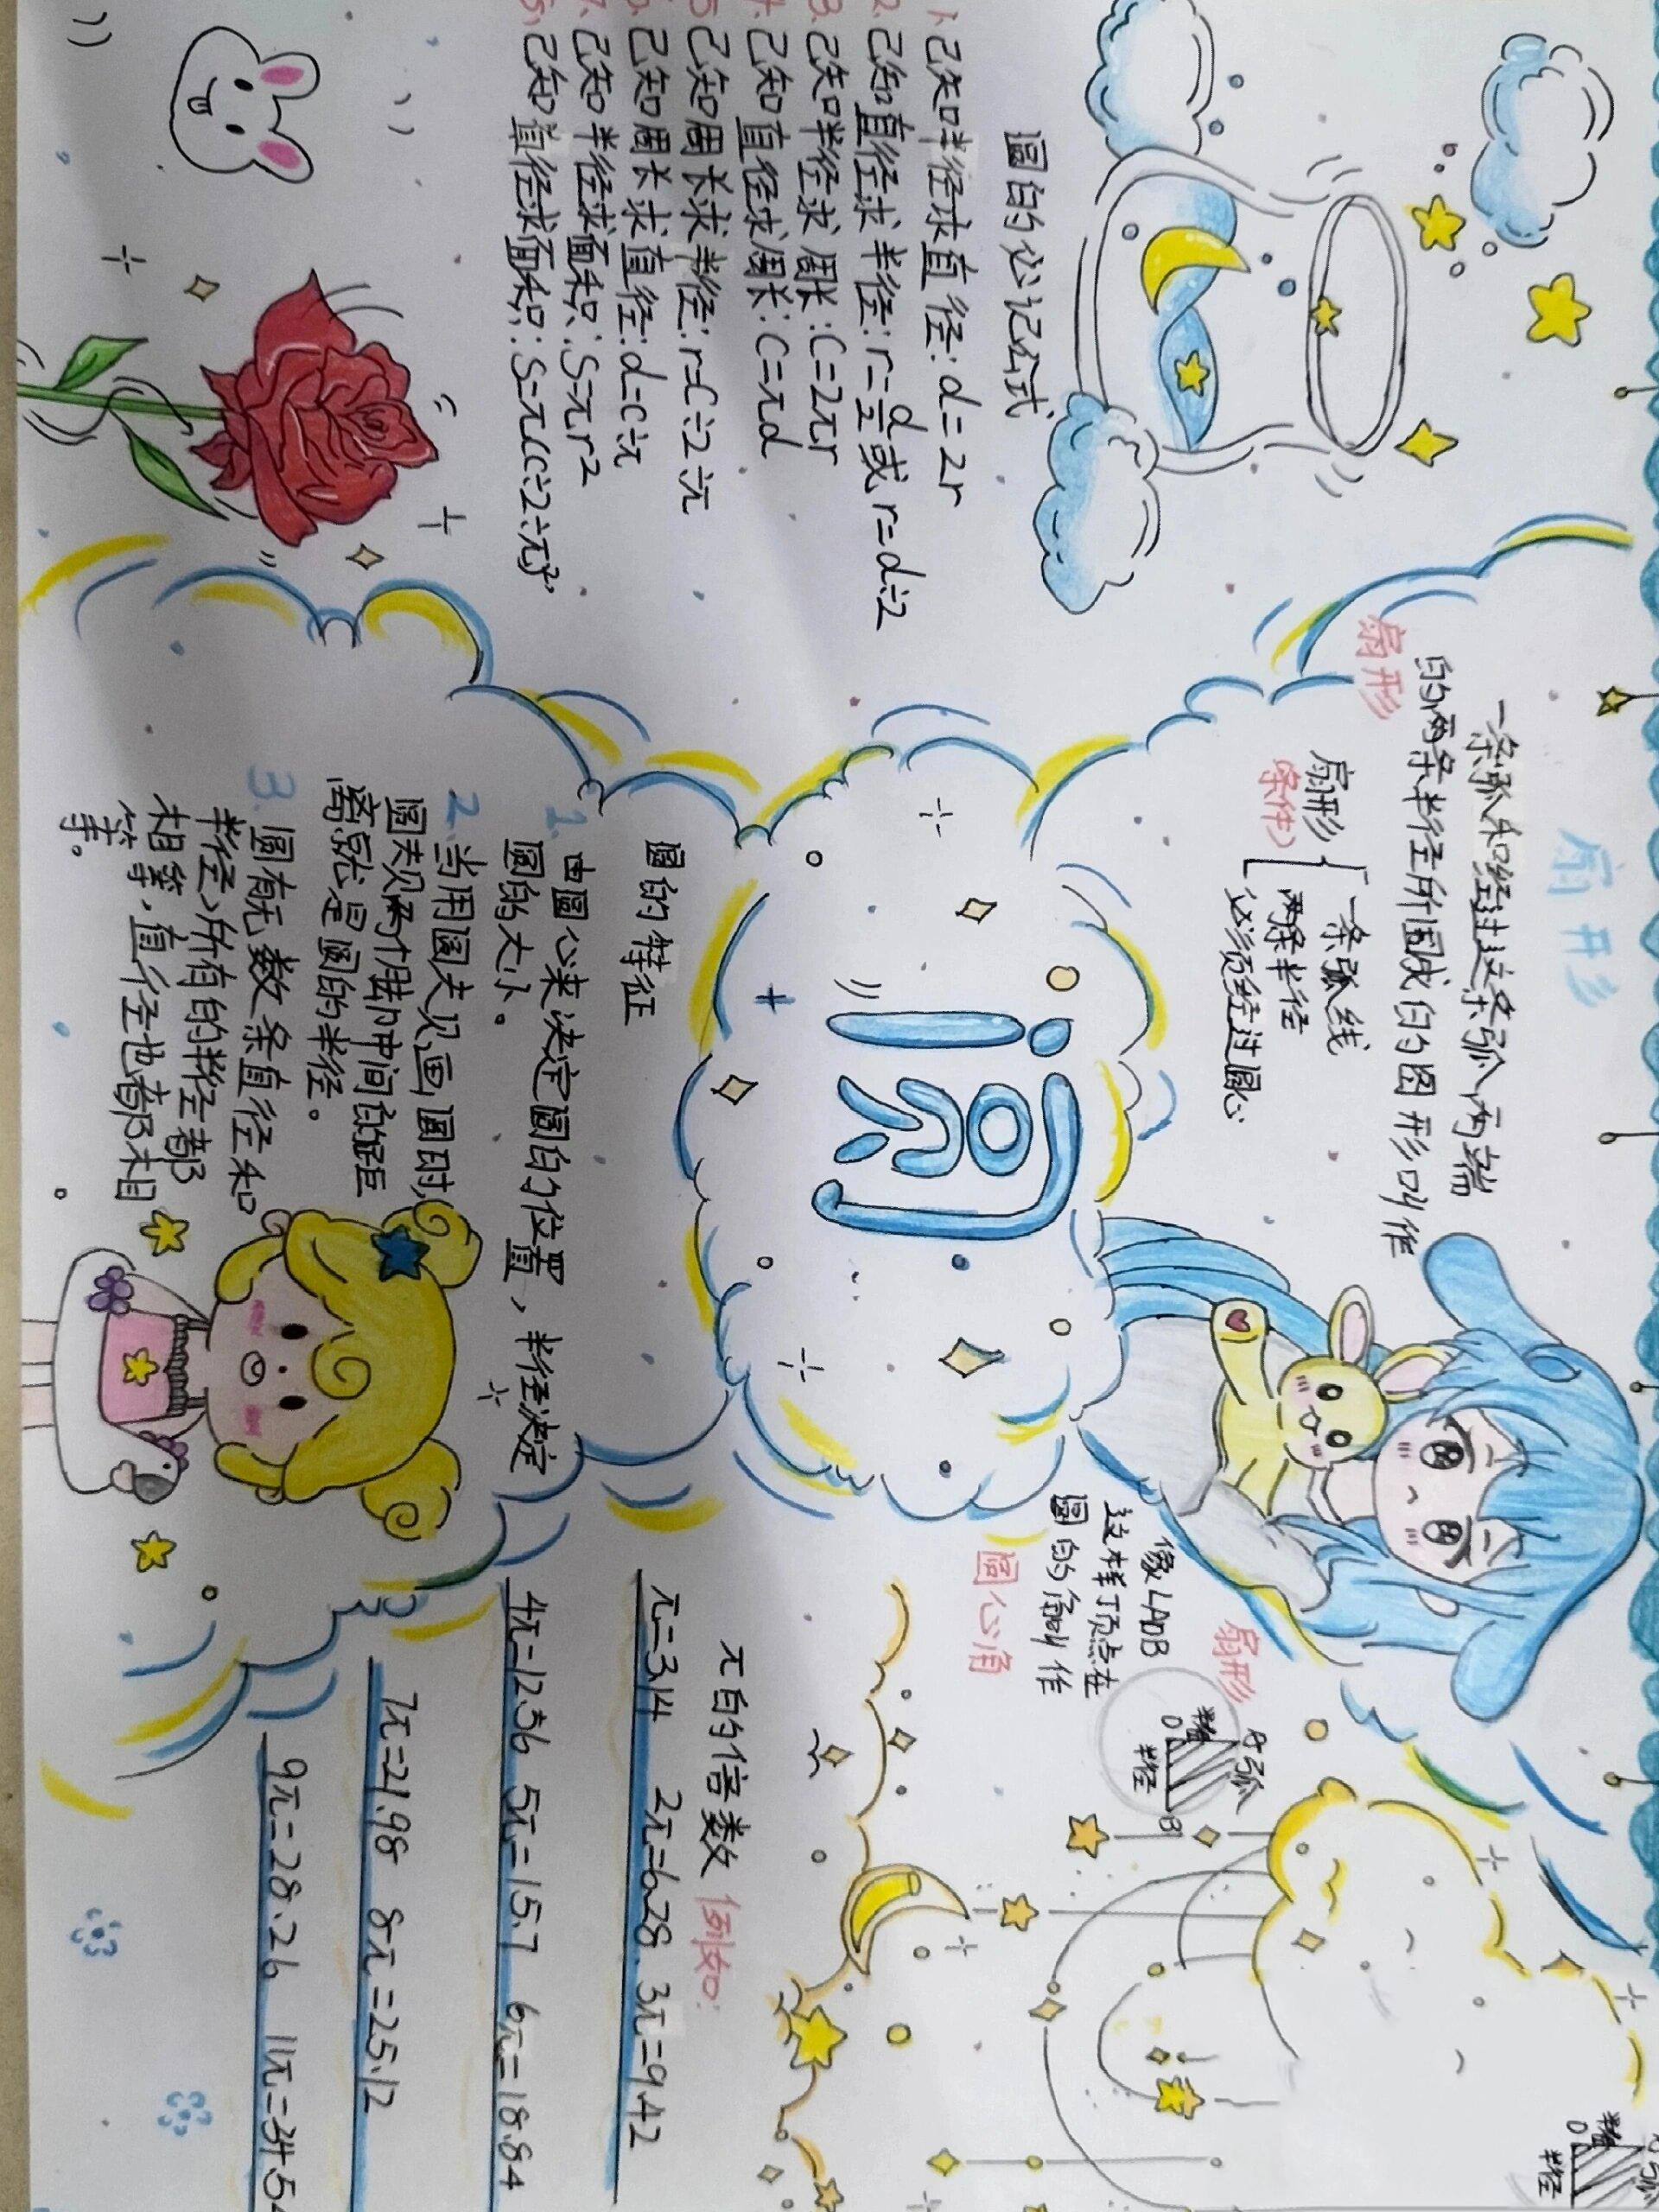 圆的必记公式
1、已知半径求直径:d=2r
2.已知直径求半径:r=d/2或r=d÷2
3.已知半径求周长:C=2πr
4.已知直径求周长:C=πd
5.已知周长求半径:r=C÷2÷π
6.已知周长求直径:d=C÷π
7.已知半径求面积:S=πr²
已知直径求面积:S=π(C÷2÷π)²
扇形
一条弧和经过这条弧两端
的两条半径所围成的图形叫作
扇形
扇形{一条弧线
(条件)
两条半径
必须经过圆心
圆
圆的特征
1.由圆心来决定圆的位置,半径决定
圆的大小。
2.当用圆夫见画圆时,
圆夫见两个脚中间的距
离就是圆的半径。
3.圆有无数条直径和
半径,所有的半径都
相等,直径也都相
等。
扇形
像∠AOB
这样顶点在
圆的角叫作
圆心角
A弧
半径
O
半径
B
π的倍数 例如:
π=3.14 2π=6.28. 3π=9.42
4π=12.56 5π=15.7 6π=18.84
7π=21.98 8π=25.12
9π=28.26 11π=34.54
半径
O
弧
半径